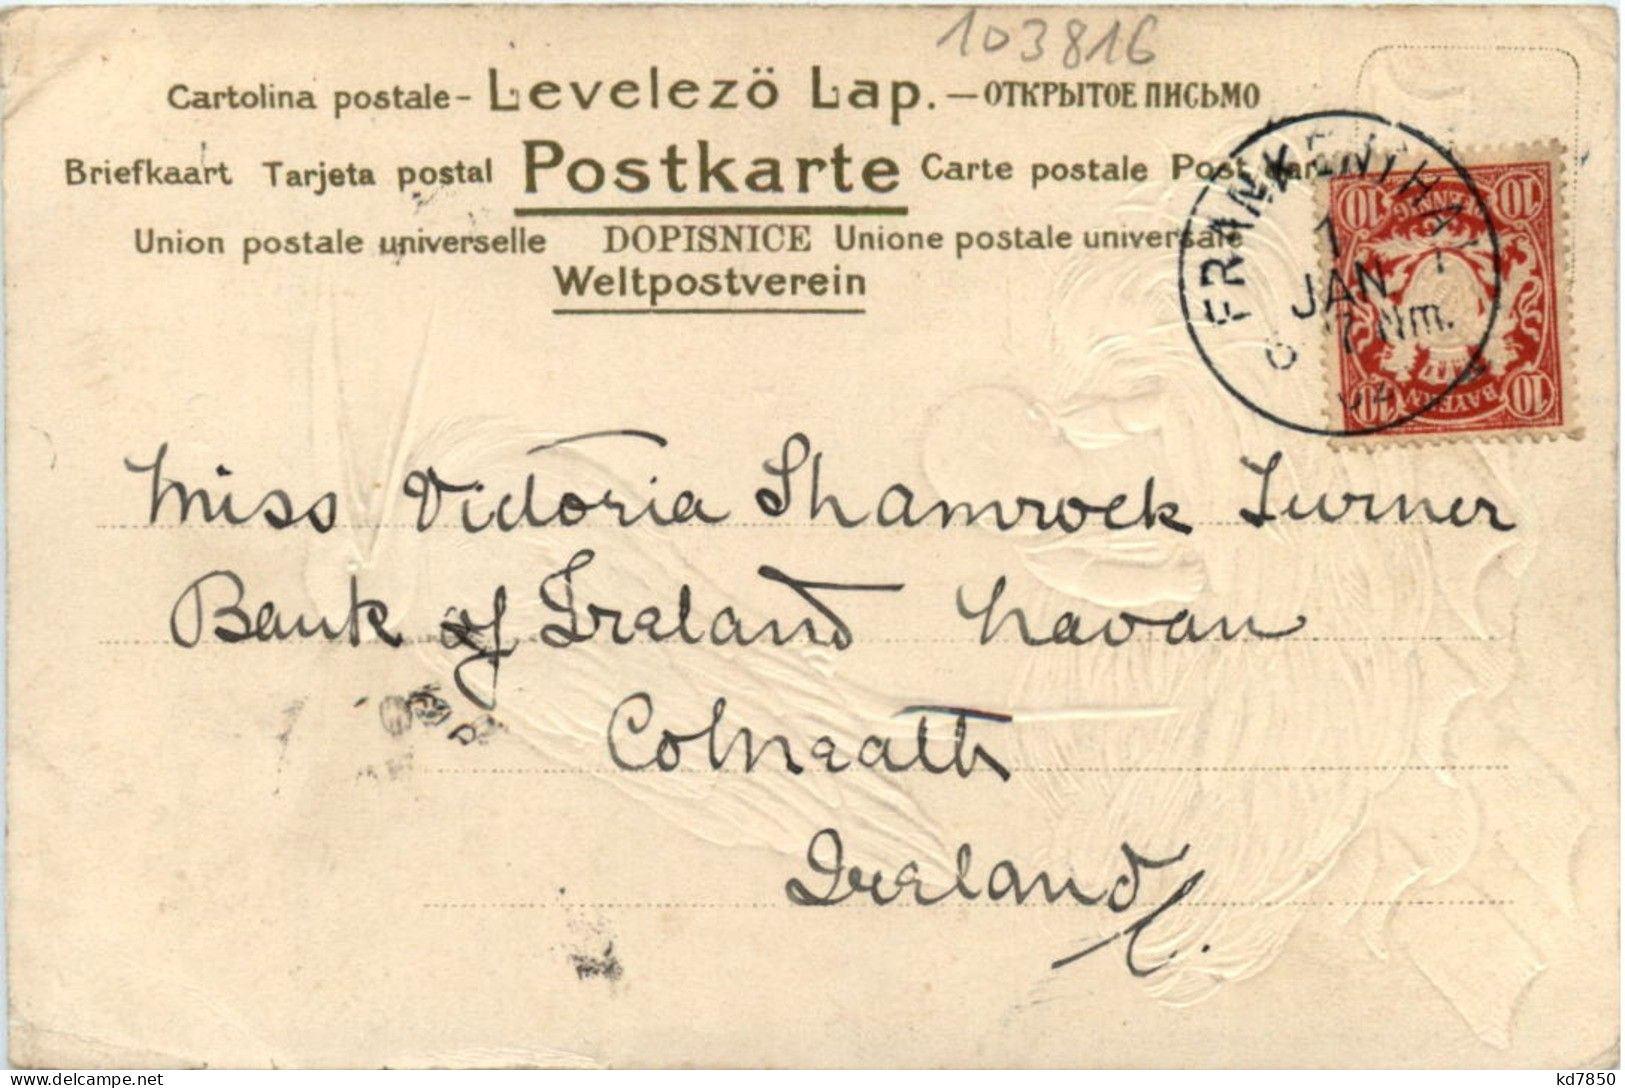 103816
Cartolina postale - Levelező Lap. — ОТКРЫТОЕ ПИСЬМО
Briefkaart Tarjeta postal Postkarte Carte postale Post
Union postale universelle DOPISNICE Unione postale universale
Weltpostverein
FRANKENTHAL I
1
JAN
7 Nm.
04
10 10
10 BAYERN 10
Miss Victoria Shamrock Turner
Bank of Ireland Navan
Co Meath
Ireland
kd7850